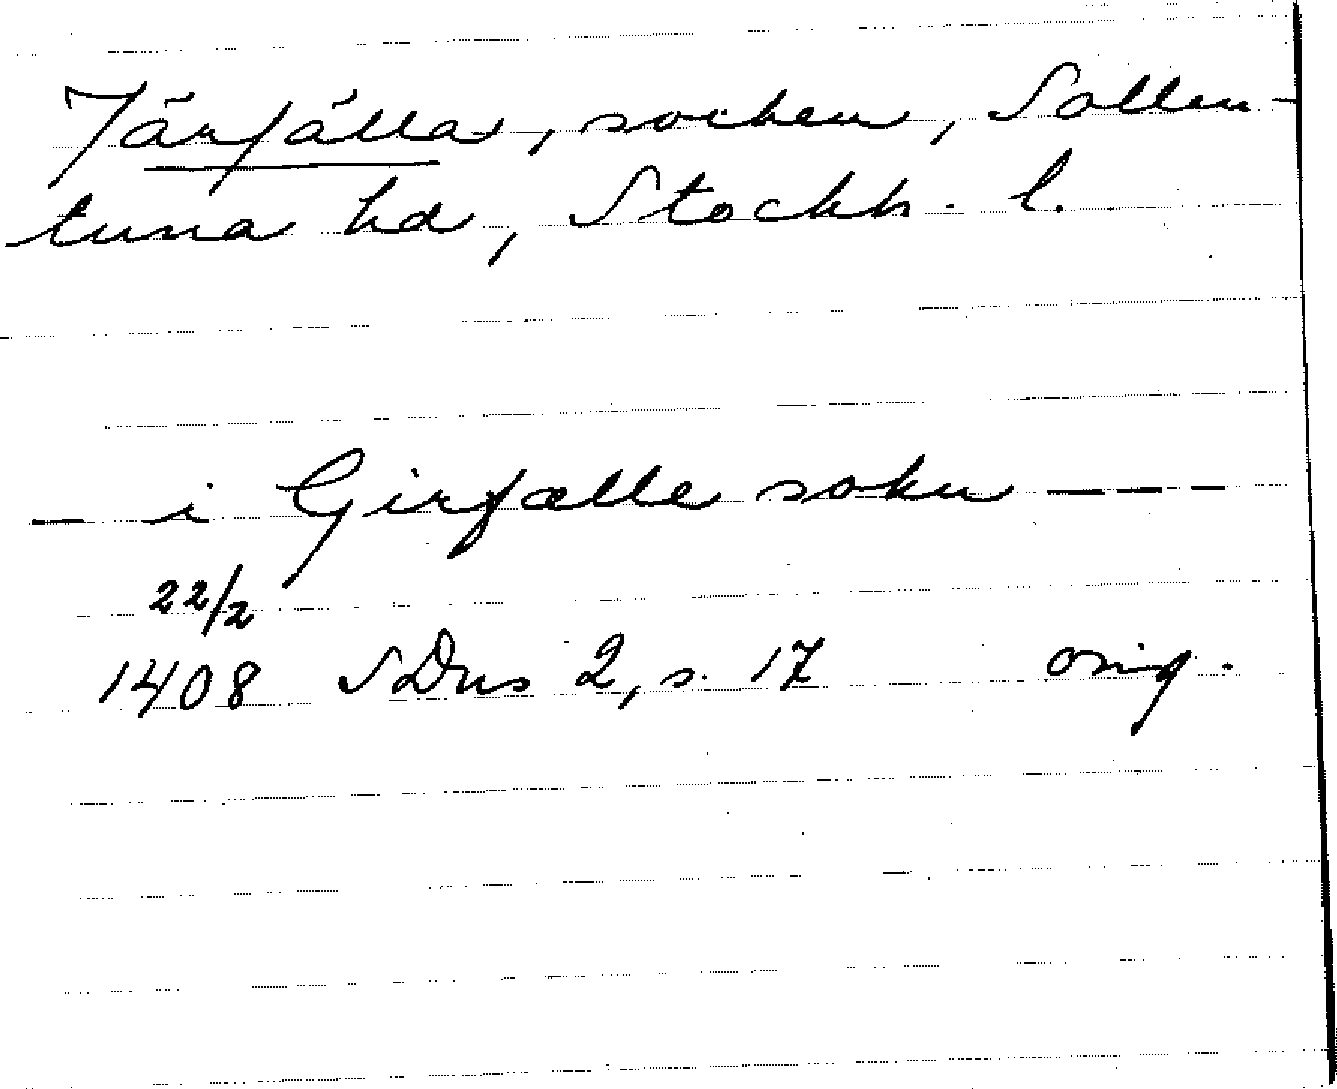 Järfälla, socken, Sollen-
tuna hd, Stockh. l.
— i Girfælle sokn — — —
22/2
1408 SDns 2, s. 17 orig.